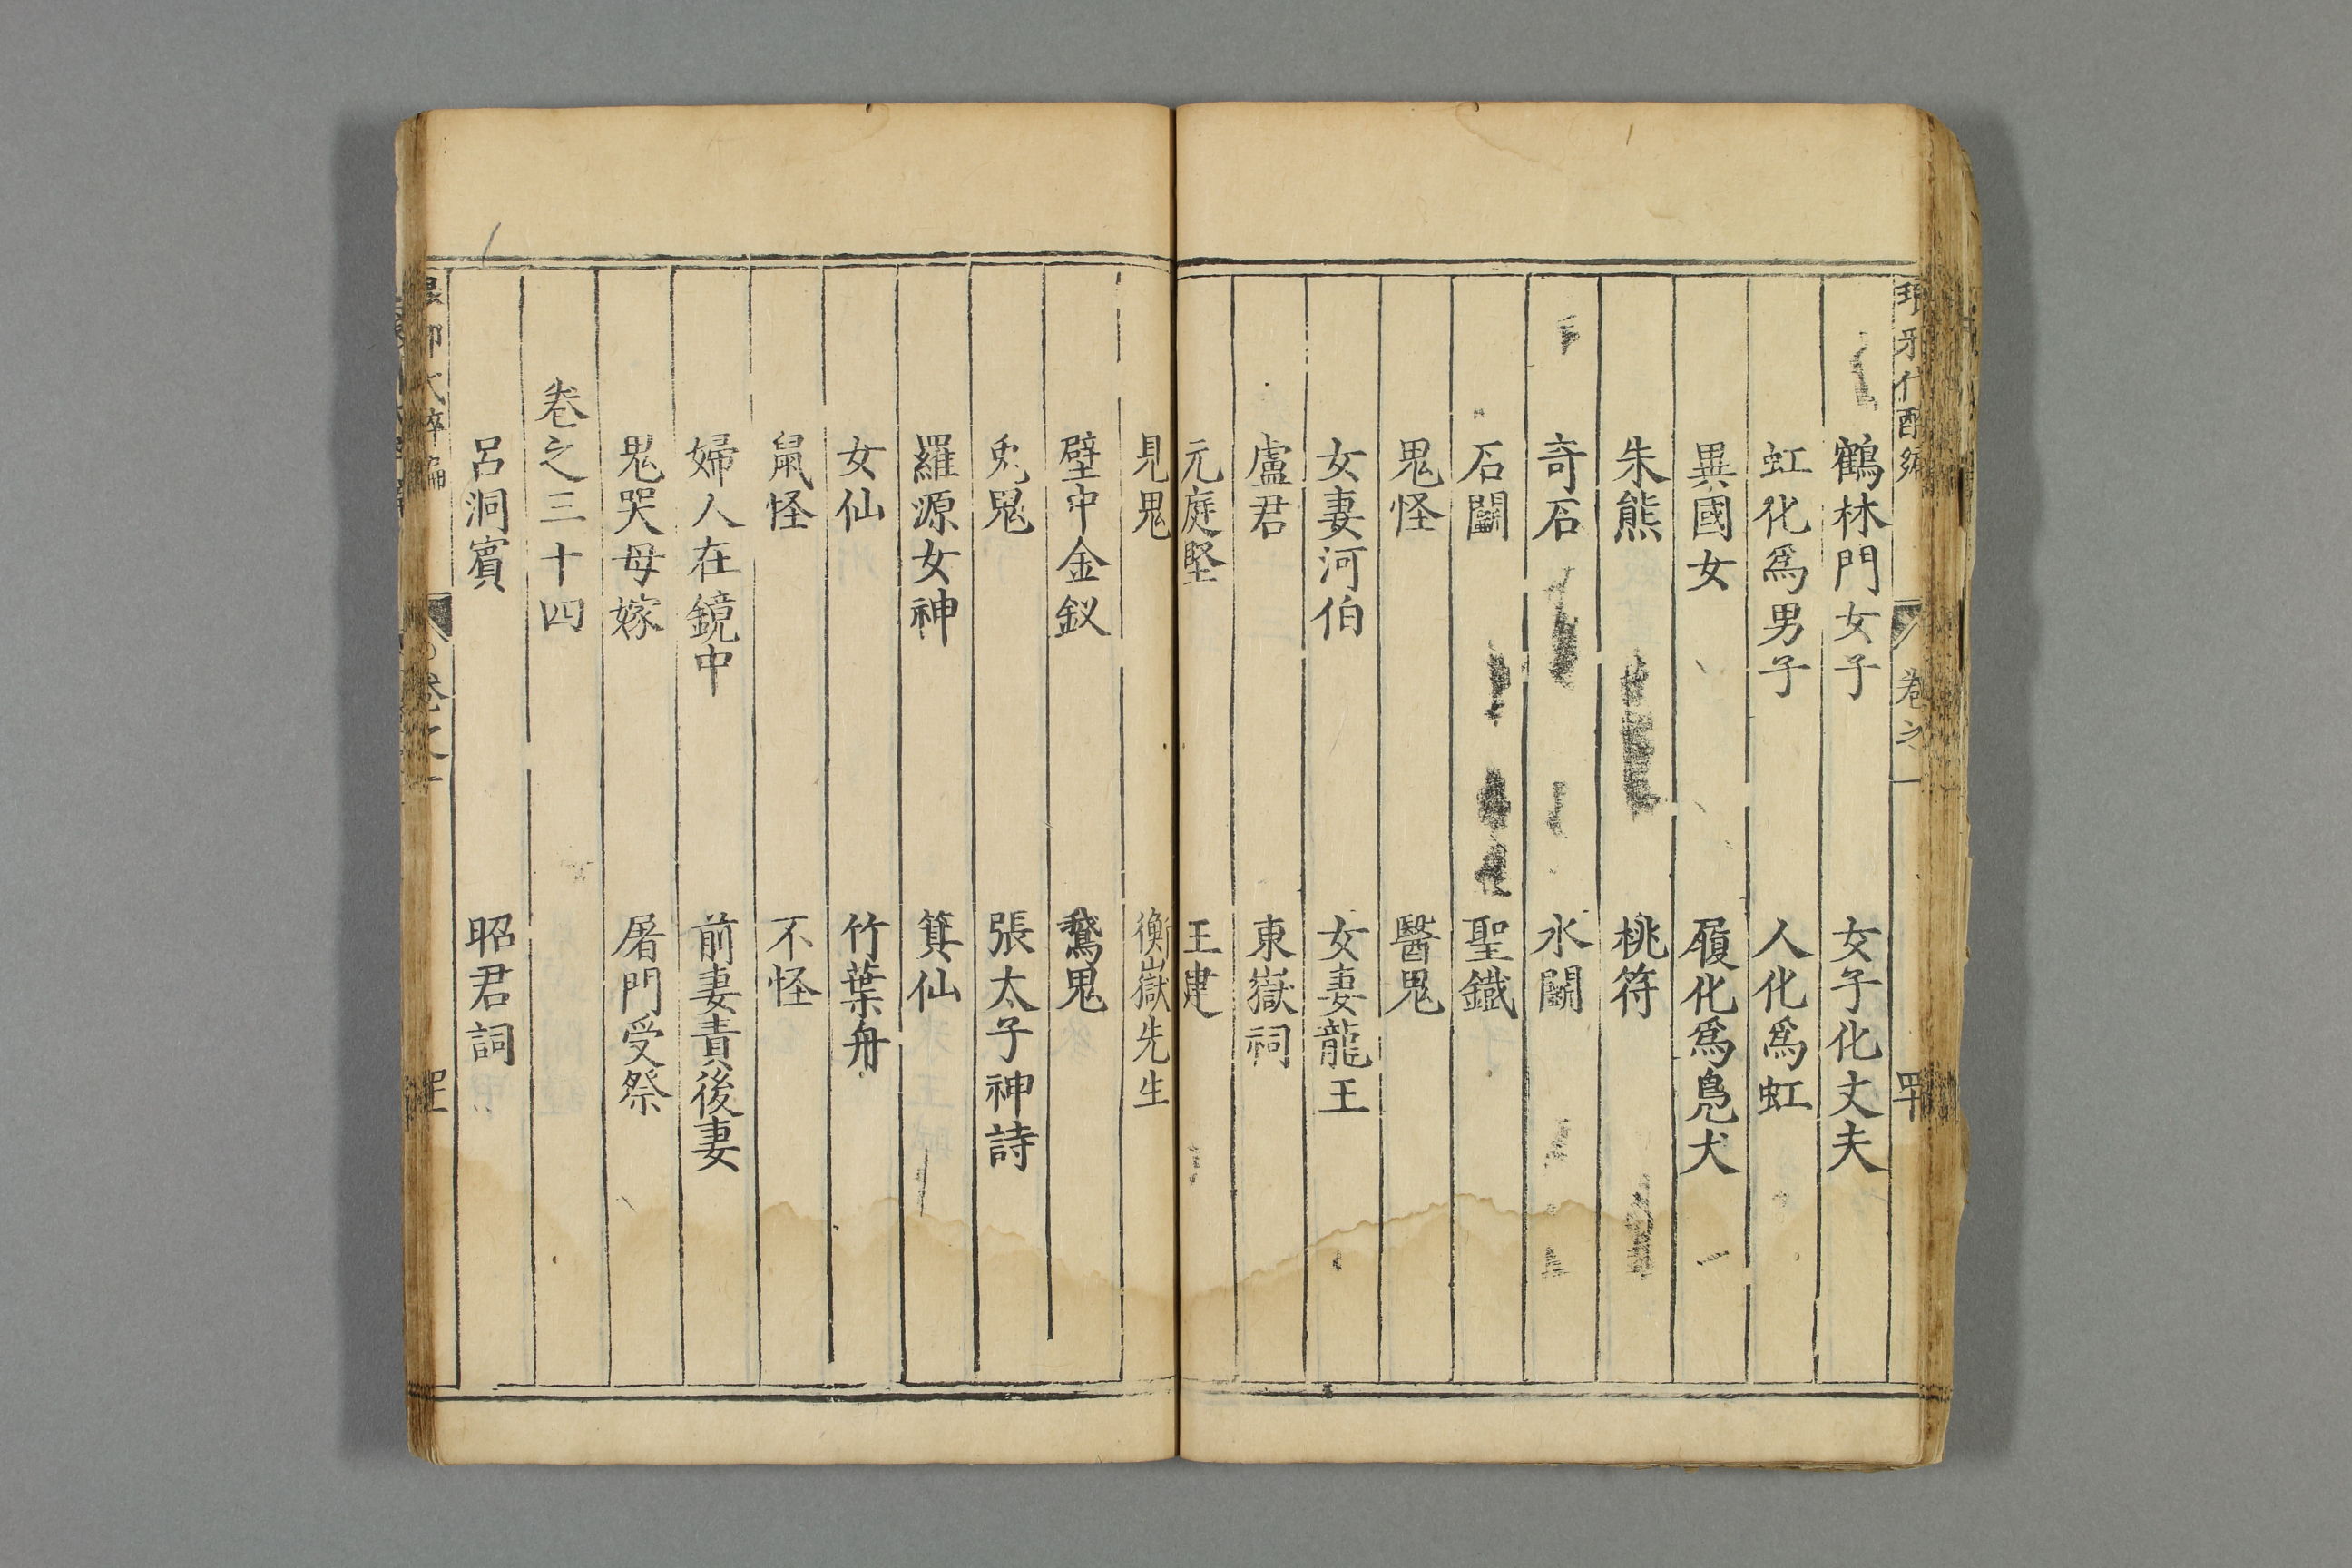 鶴林門女子 女子化丈夫
虹化爲男子 人化爲虹
異國女 履化爲鳬犬
朱熊 桃符
奇石 水鬭
石鬭 聖鐵
鬼怪 醫鬼
女妻河伯 女妻龍王
盧君 東嶽祠
元庭堅 王建
見鬼 衡嶽先生
壁中金釵 鵞鬼
兎鬼 張太子神詩
羅源女神 箕仙
女仙 竹葉舟
鼠怪 不怪
婦人在鏡中 前妻責後妻
鬼哭母嫁 屠門受祭
卷之三十四
呂洞賓 昭君詞